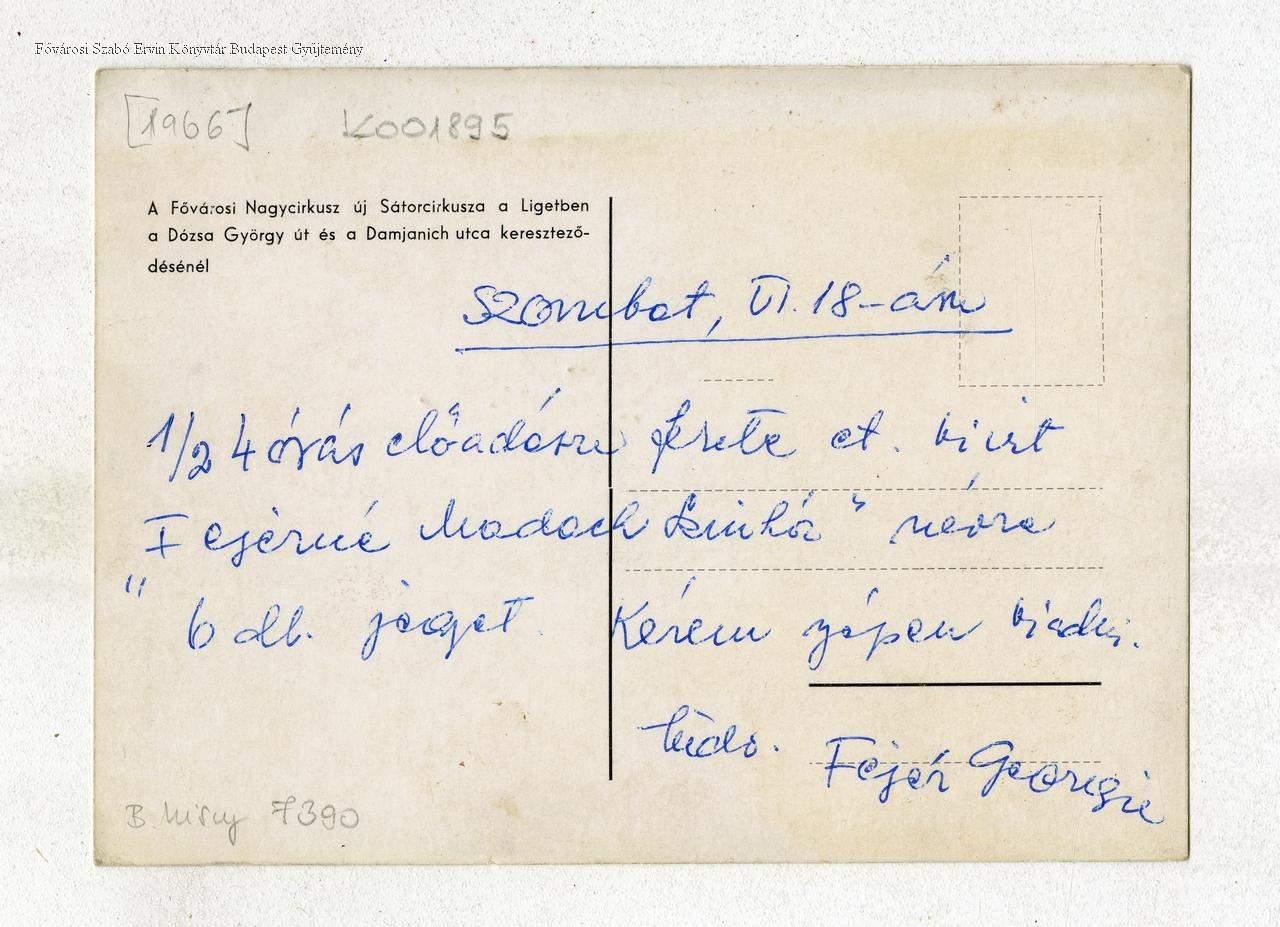 Fővárosi Szabó Ervin Könyvtár Budapest Gyűjtemény
[1966] K001895
A Fővárosi Nagycirkusz új Sátorcirkusza a Ligetben
a Dózsa György út és a Damjanich utca keresztező-
désénél
Szombat, VI. 18-án
1/2 4 órás előadásra fekete et.
"Fejérné Madach Szinház" névre
6 db. jegyet. Kérem szépen kiadni.
Üdv. Fejér Georgie
B. 7390